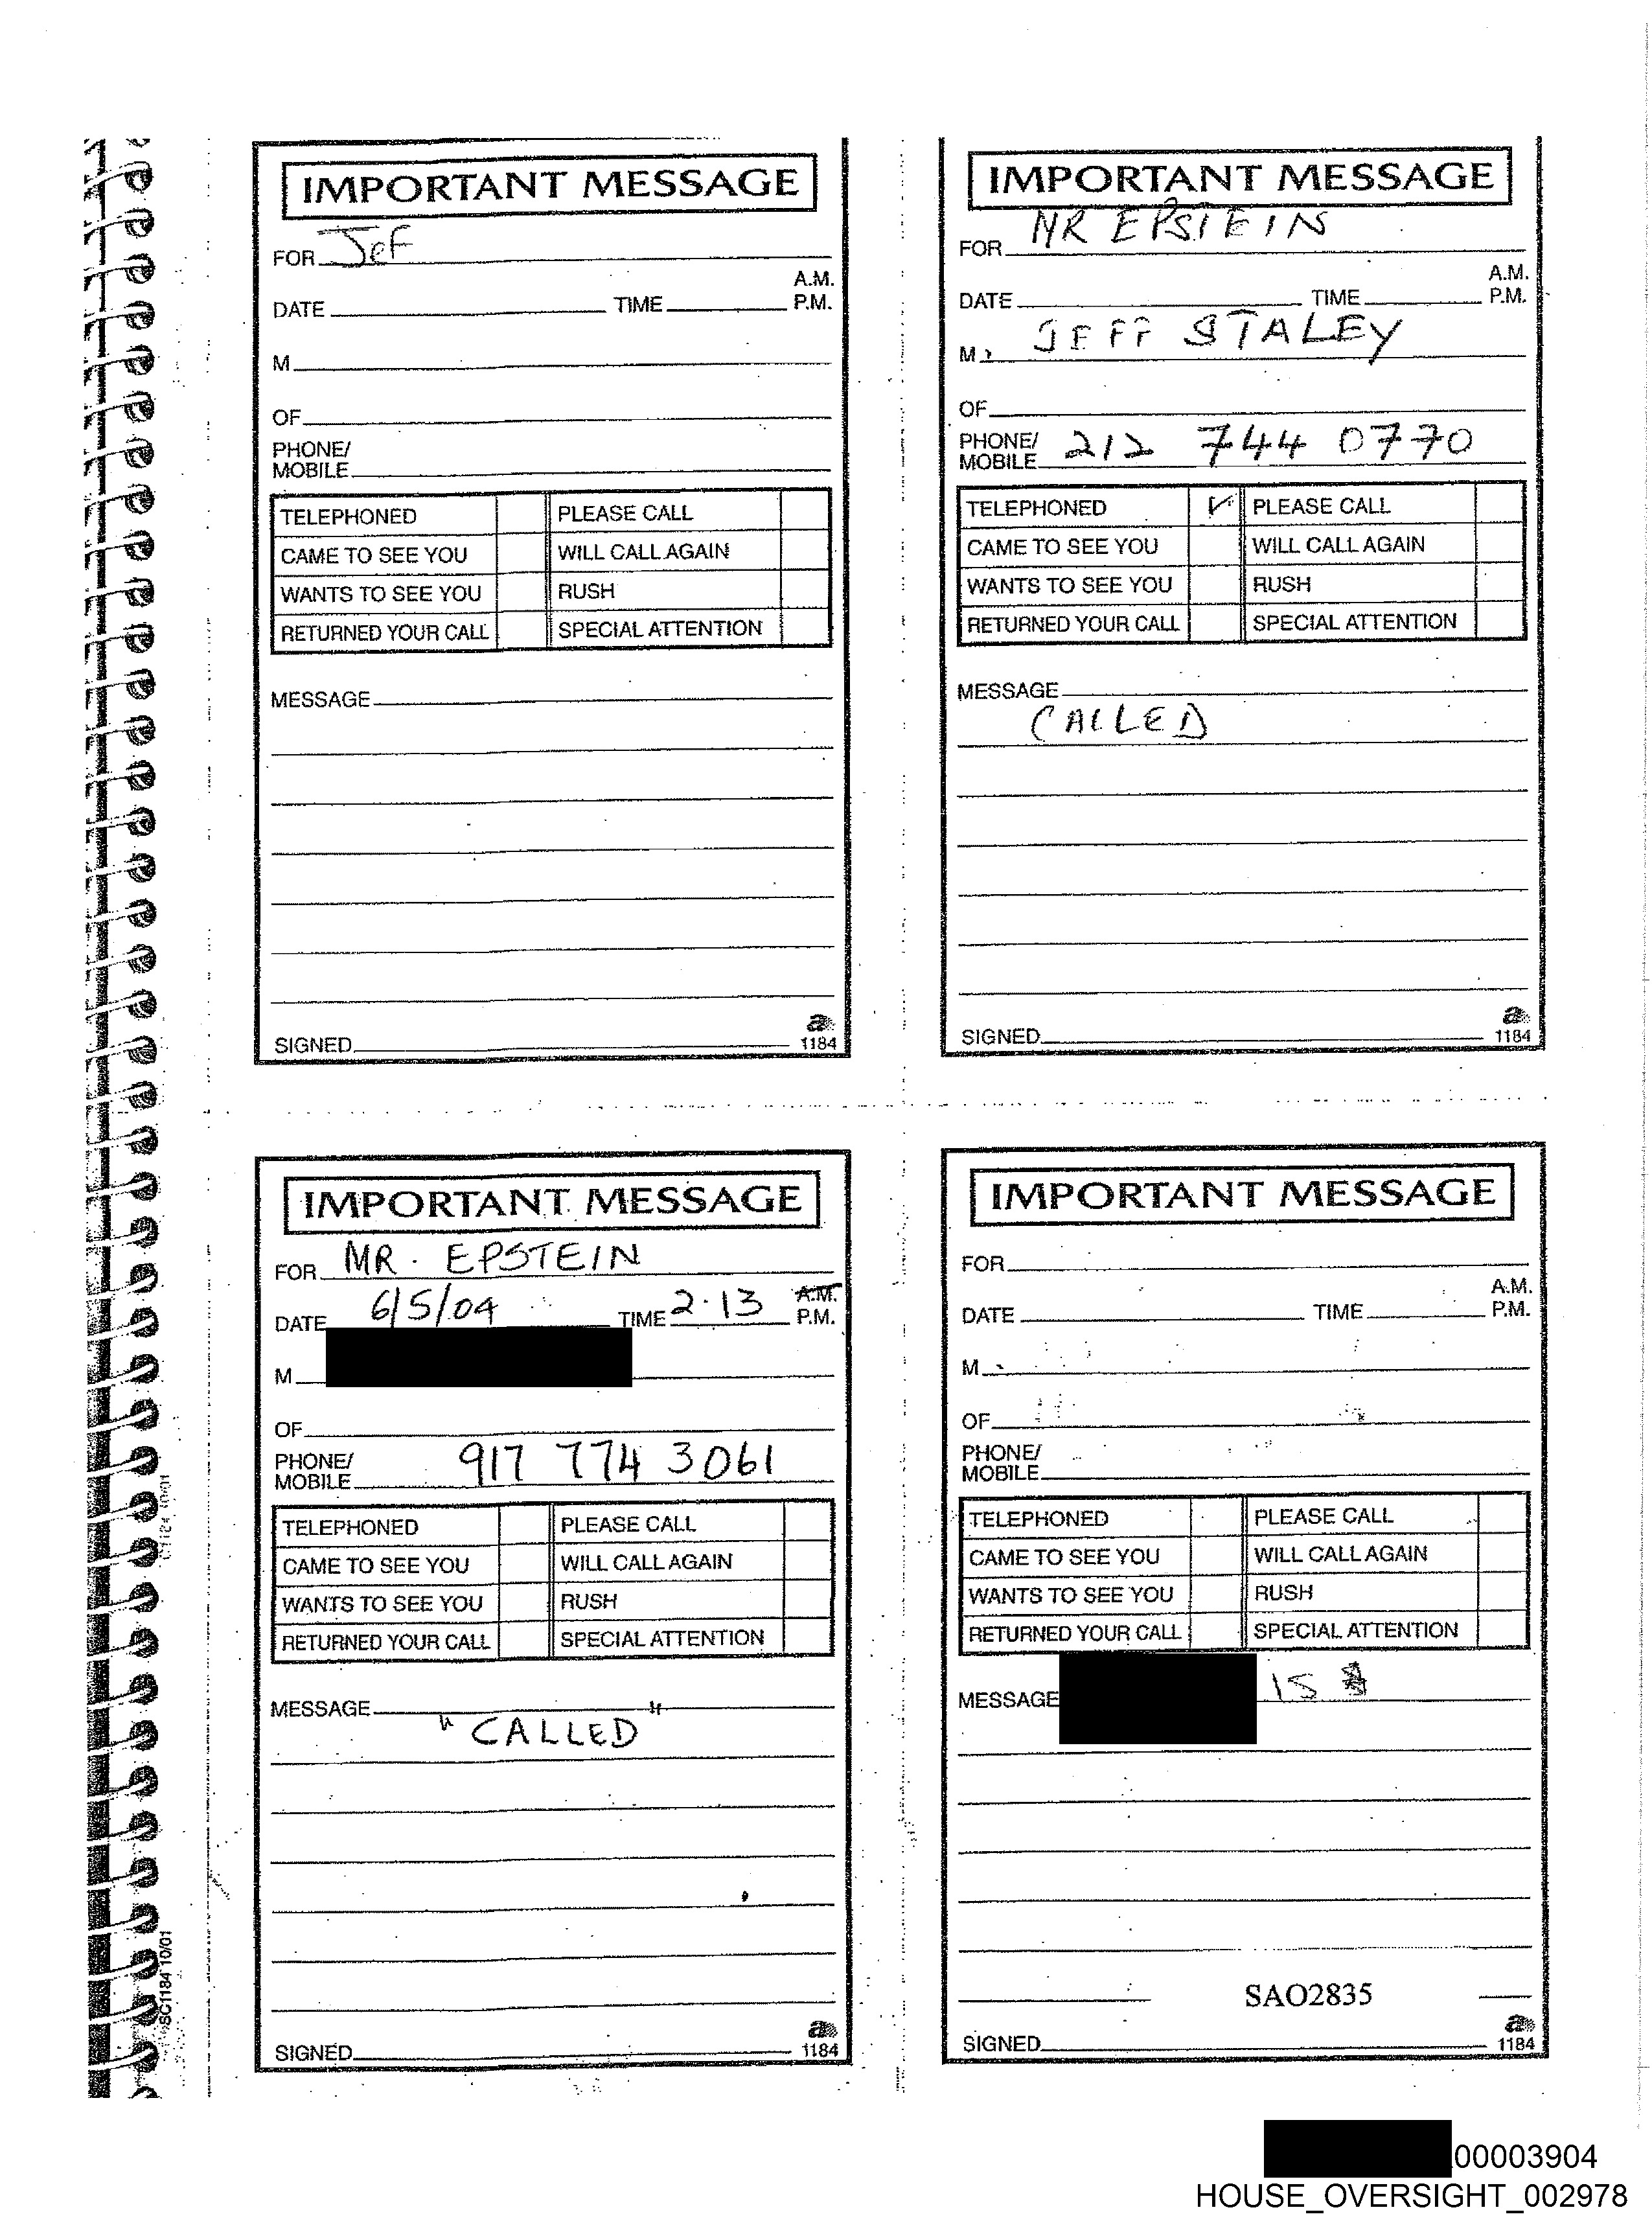 IMPORTANT MESSAGE
FOR JEF
A.M.
DATE TIME P.M.
M
OF
PHONE/
MOBILE
TELEPHONED PLEASE CALL
CAME TO SEE YOU WILL CALL AGAIN
WANTS TO SEE YOU RUSH
RETURNED YOUR CALL SPECIAL ATTENTION
MESSAGE
SIGNED
a
1184
IMPORTANT MESSAGE
FOR MR EPSTEIN
A.M.
DATE TIME P.M.
M. JEFF STALEY
OF
PHONE/
MOBILE 212 744 0770
TELEPHONED ✓ PLEASE CALL
CAME TO SEE YOU WILL CALL AGAIN
WANTS TO SEE YOU RUSH
RETURNED YOUR CALL SPECIAL ATTENTION
MESSAGE
CALLED
SIGNED
a
1184
IMPORTANT MESSAGE
FOR MR. EPSTEIN
A.M.
DATE 6/5/04 TIME 2.13 P.M.
M
OF
PHONE/
MOBILE 917 774 3061
TELEPHONED PLEASE CALL
CAME TO SEE YOU WILL CALL AGAIN
WANTS TO SEE YOU RUSH
RETURNED YOUR CALL SPECIAL ATTENTION
MESSAGE
"CALLED"
SIGNED
a
1184
IMPORTANT MESSAGE
FOR
A.M.
DATE TIME P.M.
M
OF
PHONE/
MOBILE
TELEPHONED PLEASE CALL
CAME TO SEE YOU WILL CALL AGAIN
WANTS TO SEE YOU RUSH
RETURNED YOUR CALL SPECIAL ATTENTION
MESSAGE IS
SAO2835
SIGNED
a
1184
SC1184 10/01
00003904
HOUSE_OVERSIGHT_002978